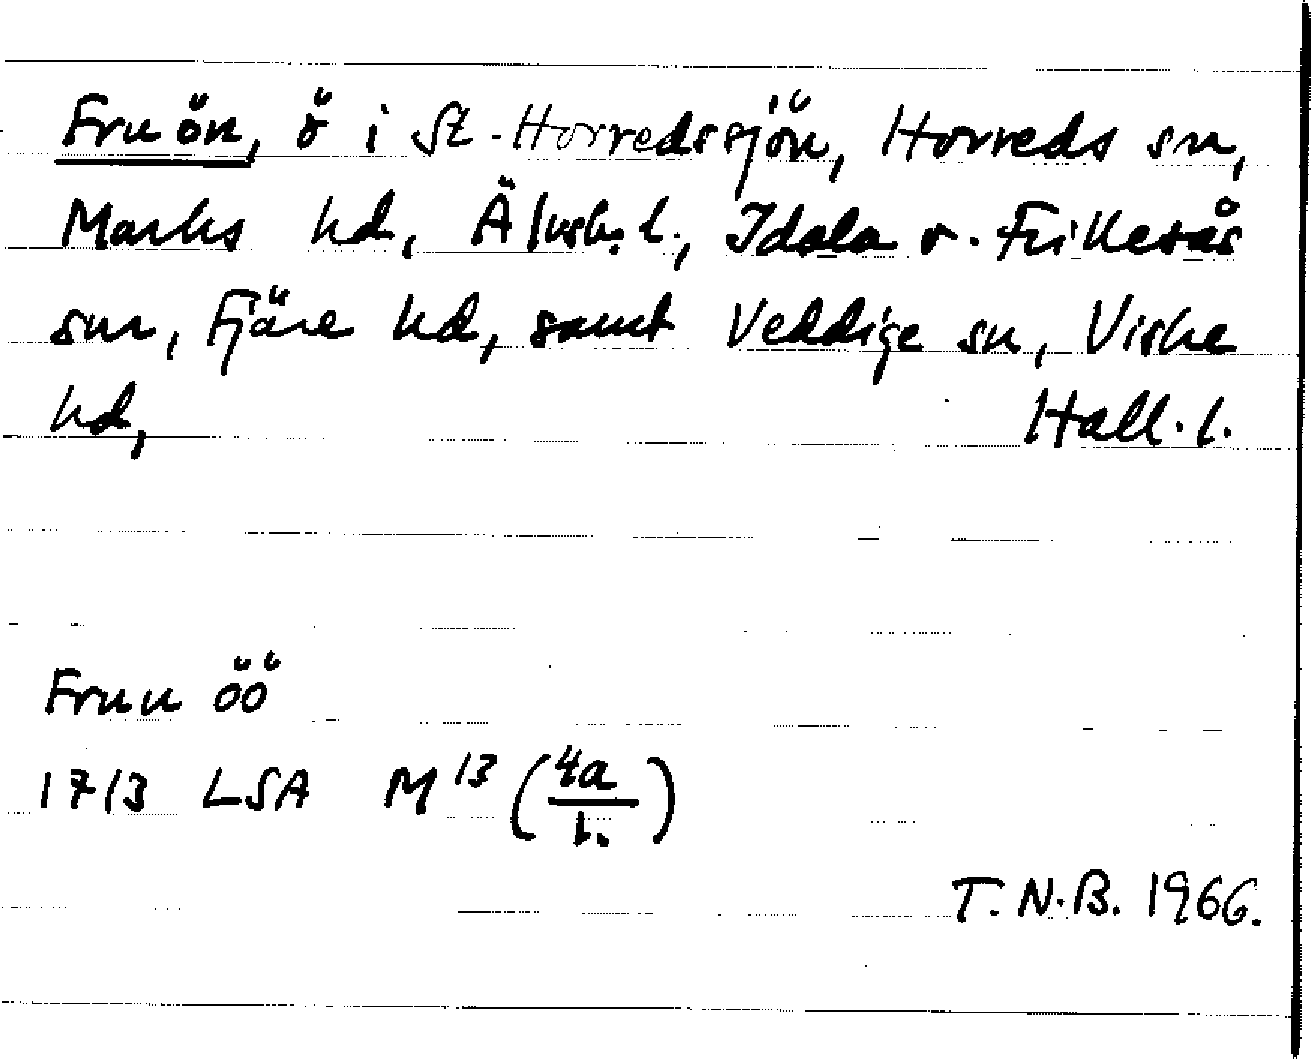 Fruön, ö i St. Horredssjön, Horreds sn,
Marks hd, Älvsb. l., Idala o. Frillesås
snr, Fjäre hd, samt Veddige sn, Viske
hd, Hall. l.
Fruu öö
1713 LSA M 13 (4a/1.)
T. N. B. 1966.